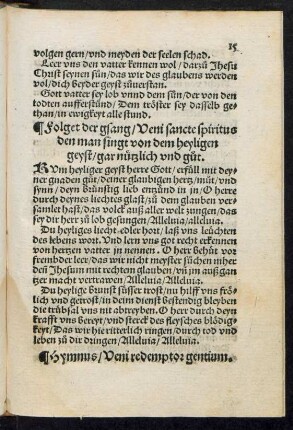 15
volgen gern/ vnd meyden der seelen schad.
Leer vns den vatter kennen wol/ darzů Jhesu
Christ seynen sůn/ das wir des glaubens werden
vol/ dich beyder geyst zůuerstan.
Gott vatter sey lob vnnd dem sůn/ der von den
todten aufferstůnd/ Dem tröster sey dasselb ge
than/ in ewigkeyt alle stund.
¶ Folget der gsang/ Veni sancte spiritus
den man singt von dem heyligen
geyst/ gar nützlich vnd gůt.
KVm heyliger geyst herre Gott/ erfüll mit dey⸗
ner gnaden gůt/ deiner glaubigen hertz/ můt/ vnd
synn/ deyn brünstig lieb entzünd in jn/ O herre
durch deynes liechtes glast/ zů dem glauben ver
samlet hast/ das volck auß aller welt zungen/ das
sey dir herr zů lob gesungen/ Alleluia/ alleluia.
Du heyliges liecht edler hort/ laß vns leüchten
des lebens wort. Vnd lern vns got recht erkennen
von hertzen vatter jn nennen. O herr behüt vor
frembder leer/ das wir nicht meyster sůchen mher
deñ Jhesum mit rechten glauben/ vñ jm auß gan
tzer macht vertrawen/ Alleluia/ Alleluia.
Du heylige brunst süsser trost/ nu hilff vns frö⸗
lich vnd getrost/ in deim dienst bestendig bleyben
die trübsal vns nit abtreyben. O herr durch deyn
krafft vns bereyt/ vnd sterck des fleysches blödig⸗
keyt/ Das wir hie ritterlich ringen/ durch tod vnd
leben zů dir dringen/ Alleluia/ Alleluia.
¶ Hymnus/ Veni redemptor gentium.